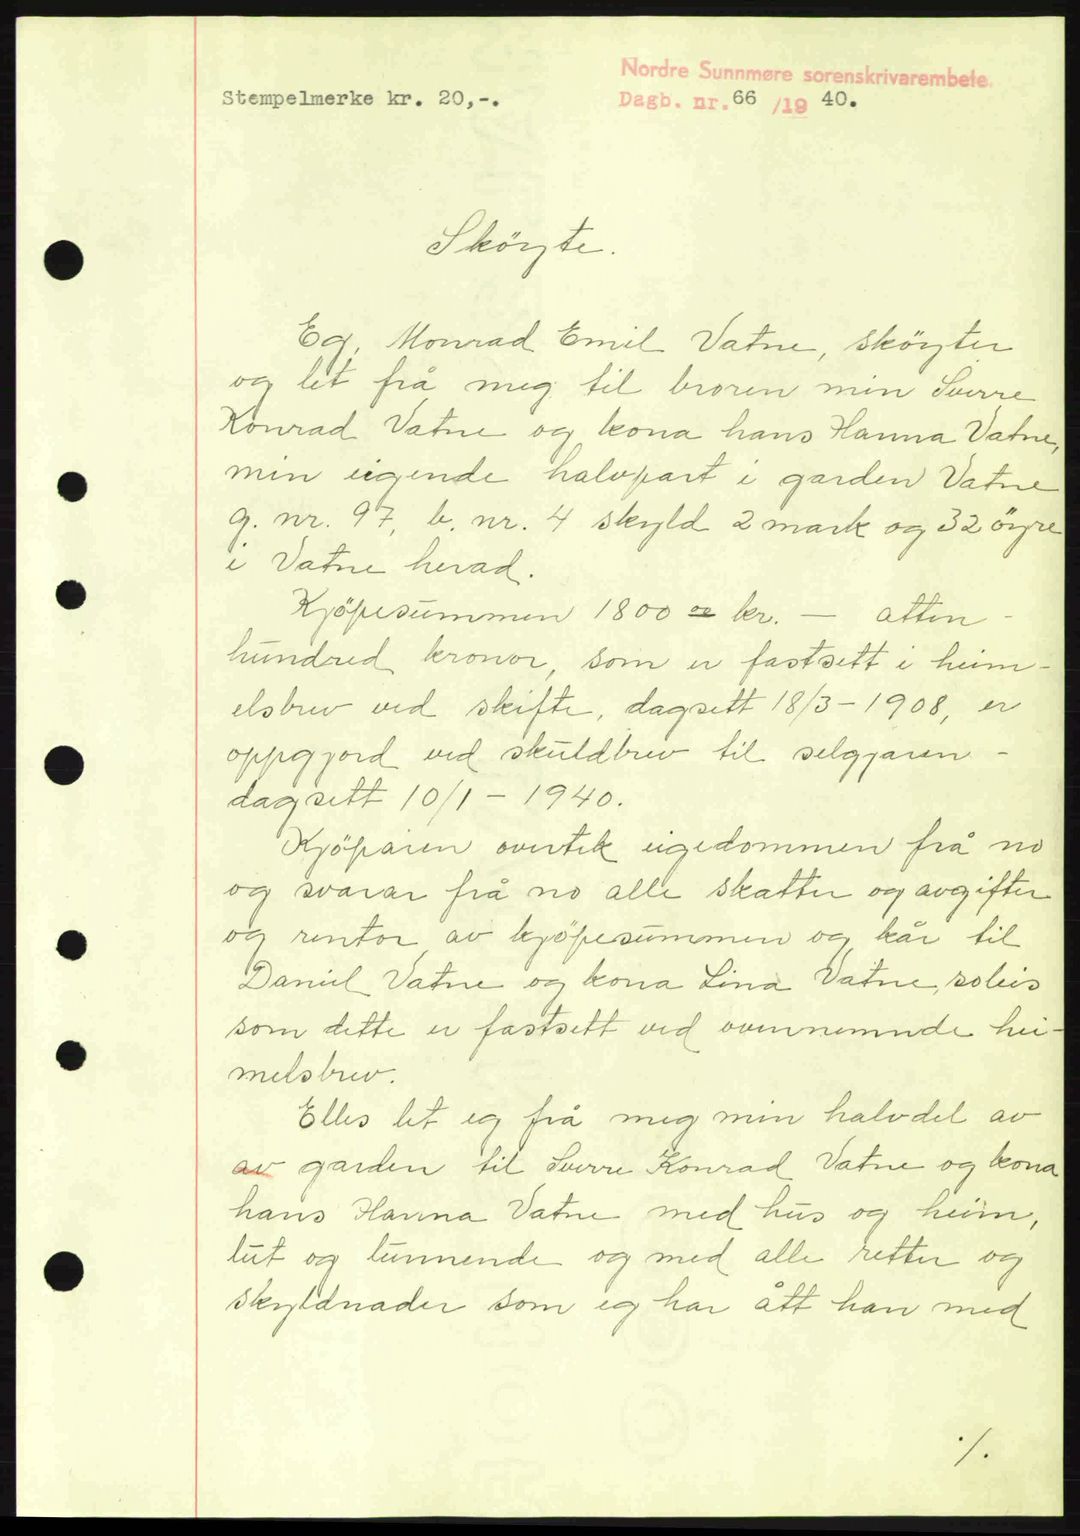 Nordre Sunnmøre sorenskrivarembete.
Stempelmerke kr. 20,-. Dagb. nr. 66 /19 40.
Sköyte.
Eg, Monrad Emil Vatne, sköyter
og let frå meg til broren min Sverre
Konrad Vatne og kona hans Hanna Vatne,
min eigende halvpart i garden Vatne
g. nr. 97, b. nr. 4 skyld 2 mark og 32 öyre
i Vatne herad.
Kjöpesummen 1800 00 kr. — atten-
hundred kronor, som er fastsett i heim-
elsbrev ved skifte, dagsett 18/3 - 1908, er
oppgjord ved skuldbrev til selgjaren -
dagsett 10/1 - 1940.
Kjöparen overtek eigedommen frå no
og svarar frå no alle skatter og avgifter
og rentor av kjöpesummen og kår til
Daniel Vatne og kona Lina Vatne, soleis
som dette er fastsett ved ovennemnde hei-
melsbrev.
Elles let eg frå meg min halvdel av
av garden til Sverre Konrad Vatne og kona
hans Hanna Vatne med hus og heim,
lut og lunnende og med alle retter og
skyldnader som eg har ått han med
./.